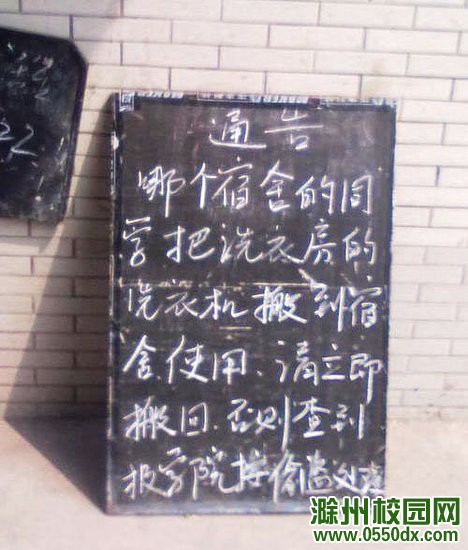 通告
哪个宿舍的同
学把洗衣房的
洗衣机搬到宿
舍使用、请立即
搬回.否则查到
报学院按偷盗处理
滁州校园网
www.0550dx.com